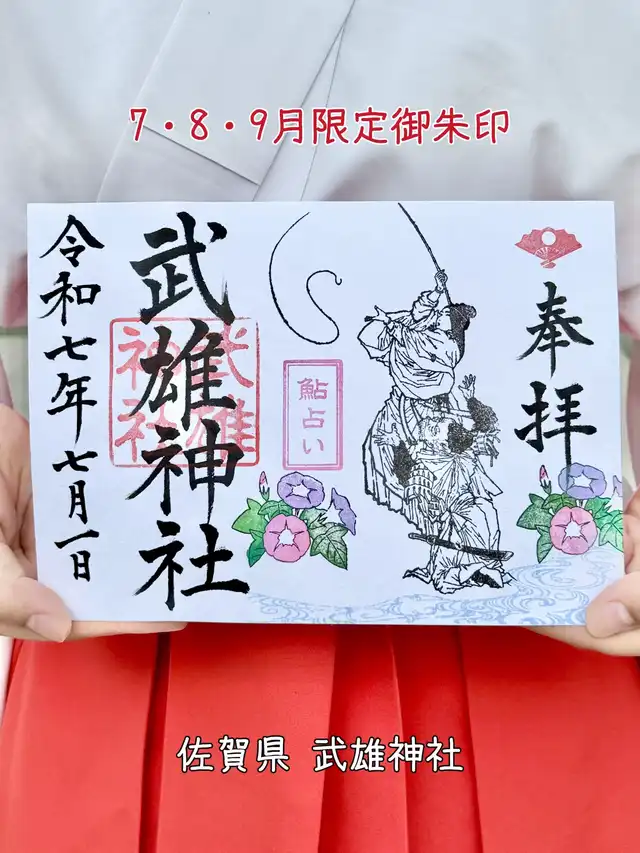 7・8・9月限定御朱印
奉拝
鮎占い
武雄神社
武雄神社
令和七年七月一日
佐賀県 武雄神社